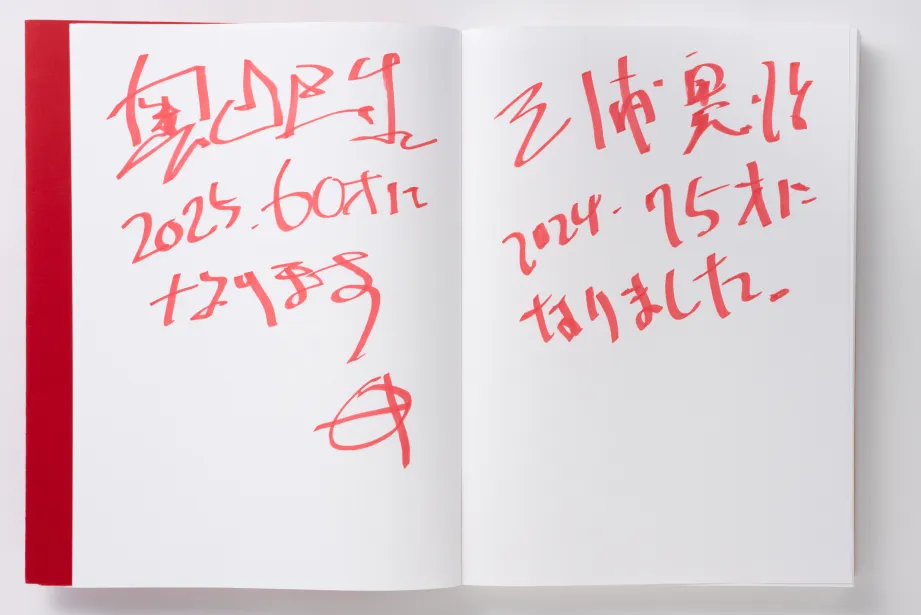 奥田民生
2025.60才に
なります
三浦憲治
2024.75才に
なりました。